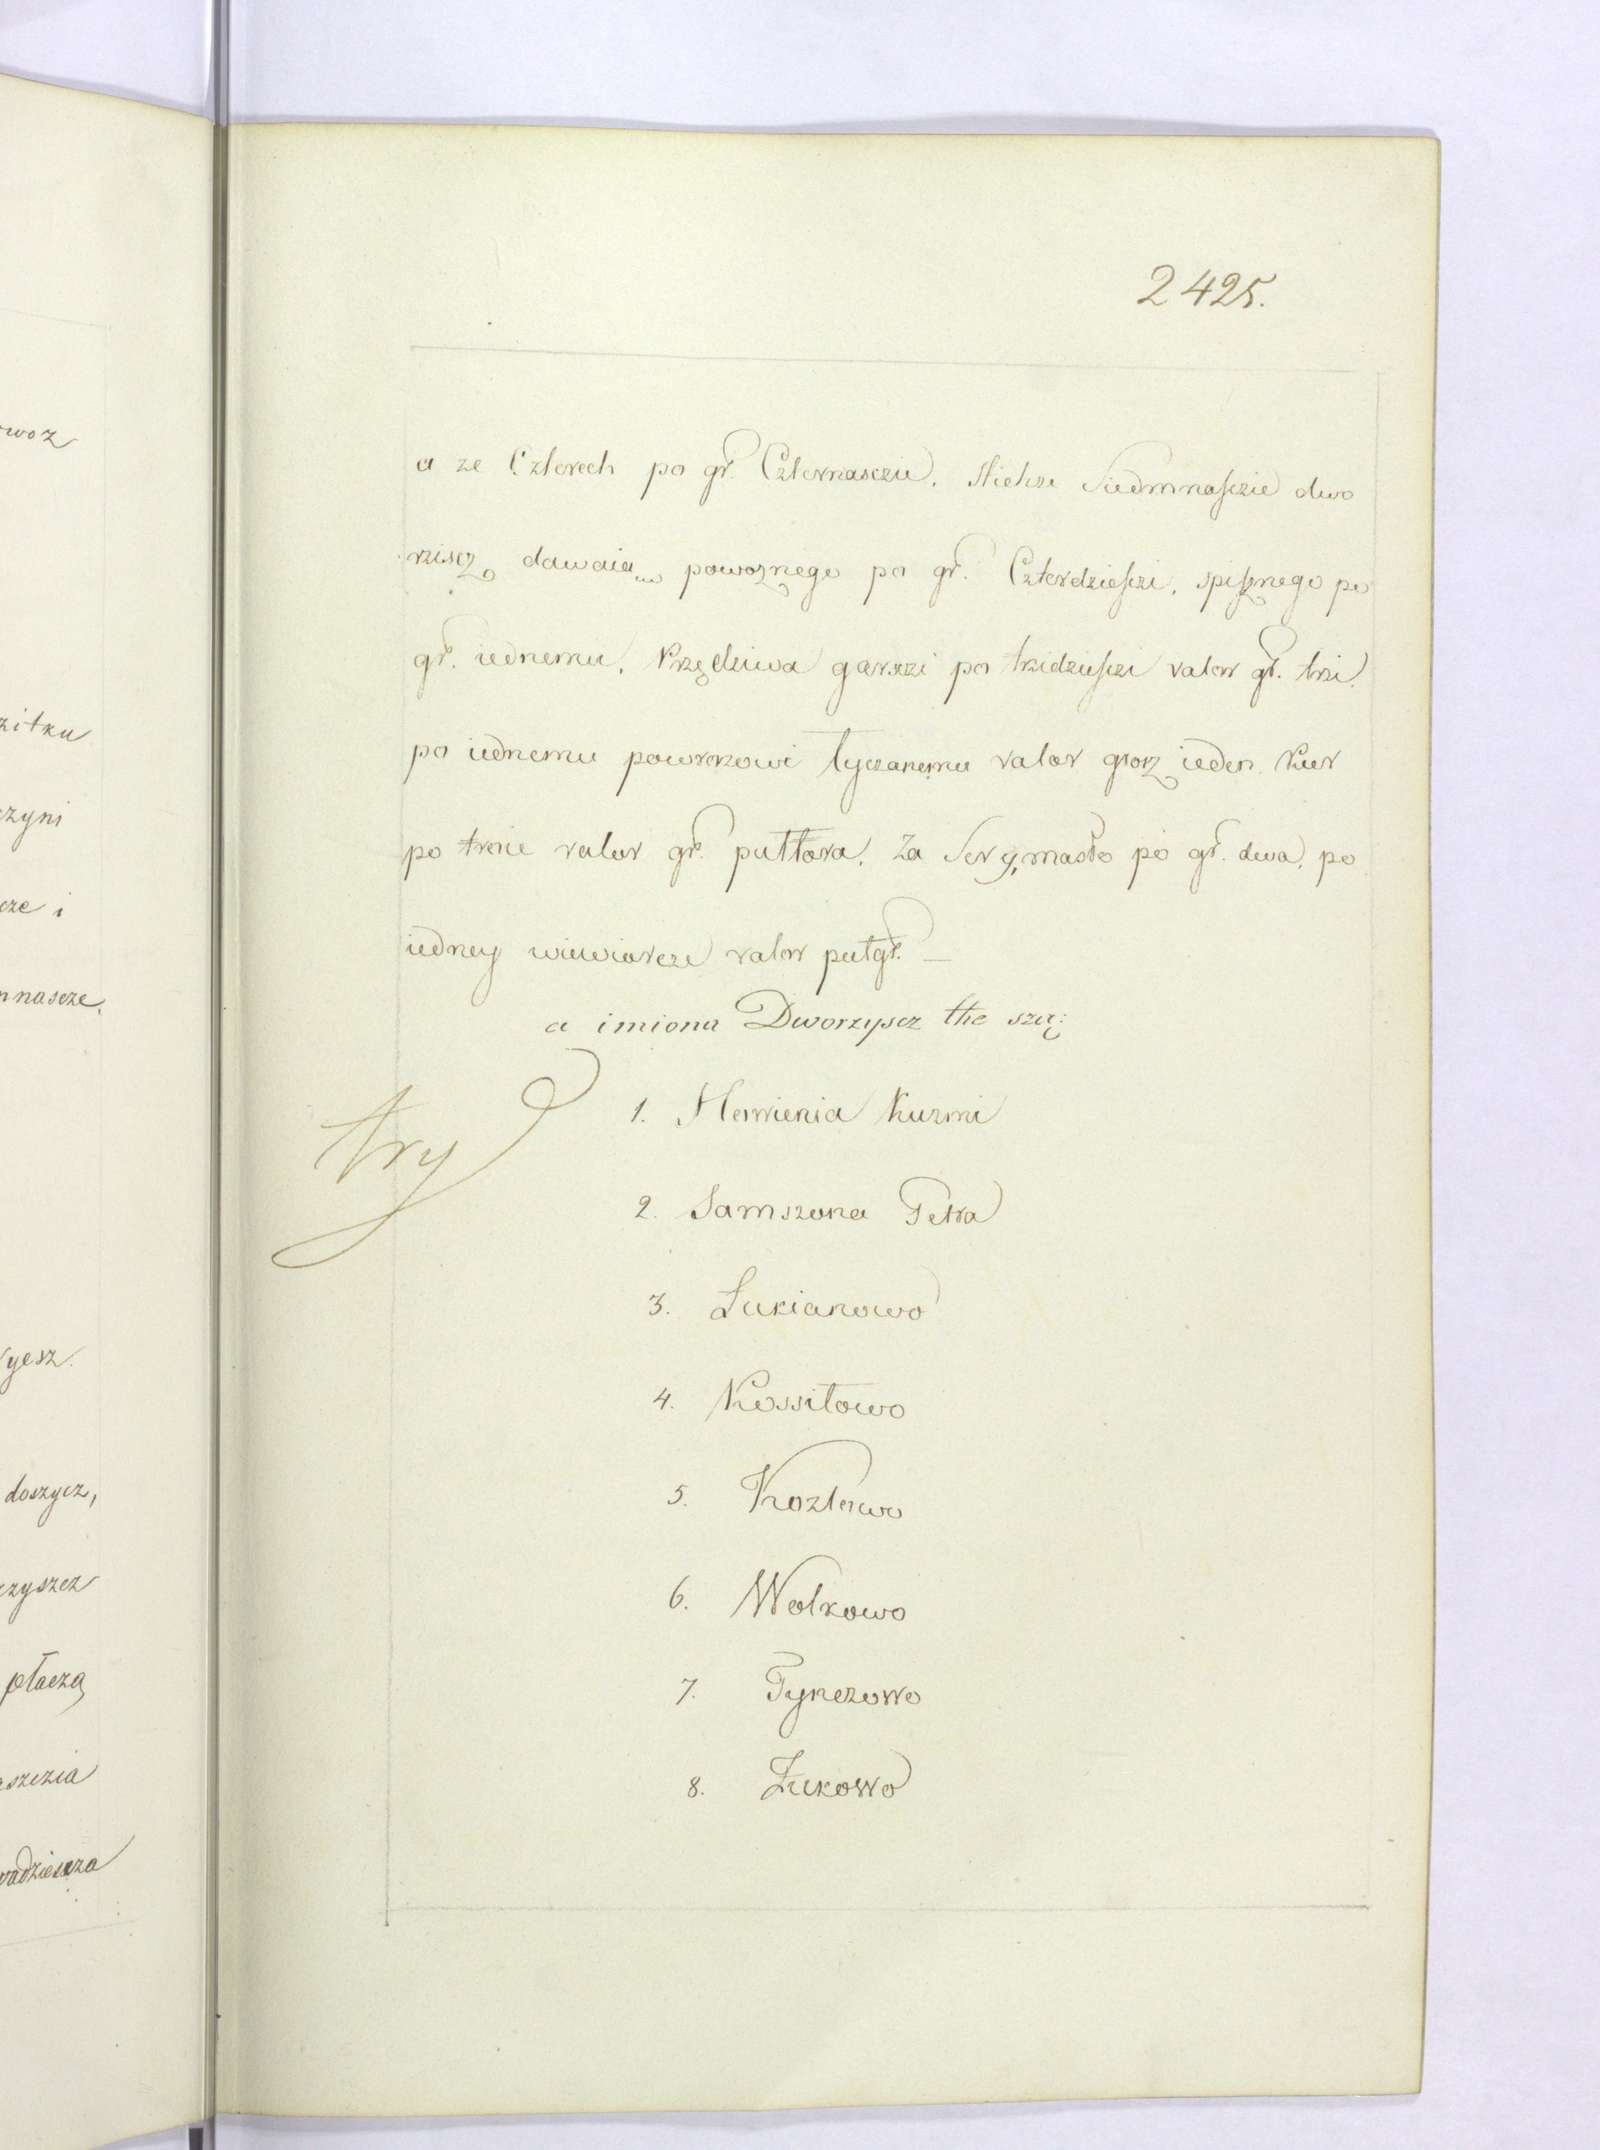 2425.
a ze Czterech po gr. Czternasczie. Siedmnasczie dwo
rziscz dawaią powoznego po gr. Czterdziesczi, spiżnego po
gr. iednemu, Przędziwa garszzi po trzidziesczi valor gr. trzi.
po iednemu powrozowi łyczanemu valor grosz ieden. Kur
po troie valor gr. pułtora, za Ser y masło po gr. dwa, po
iedney wiewiorcze valor pułgr. —
a imiona Dworzyscz the szą:
try
1. Kuzmi
2. Samszona Petra
3. Lukianowo
4. Kossiłowo
5. Kozłowo
6. Wołkowo
7. Tynczowo
8. Żukowo
woz
zitku
czyni
cze i
nnascze,
ryesz.
doszycz,
rzyszcz
płaczą
aszczia
wadziescza